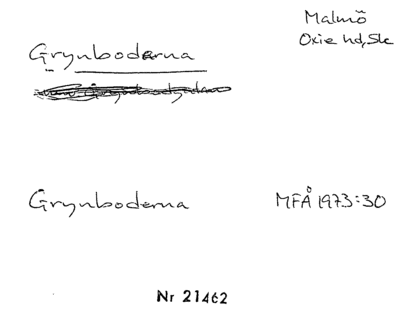 Malmö
Oxie hd, Sk
Grynboderna
Grynboderna MFÅ 1973:30
Nr 21462